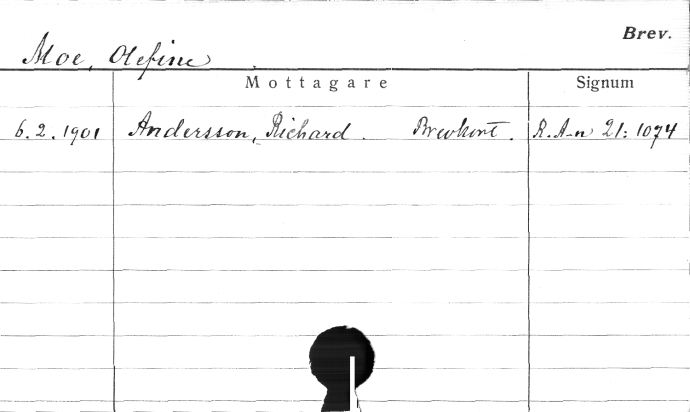 Brev.
Moe, Olefine
Mottagare Signum
6.2.1901 Andersson, Richard. Brevkort. R.A-n 21:1074